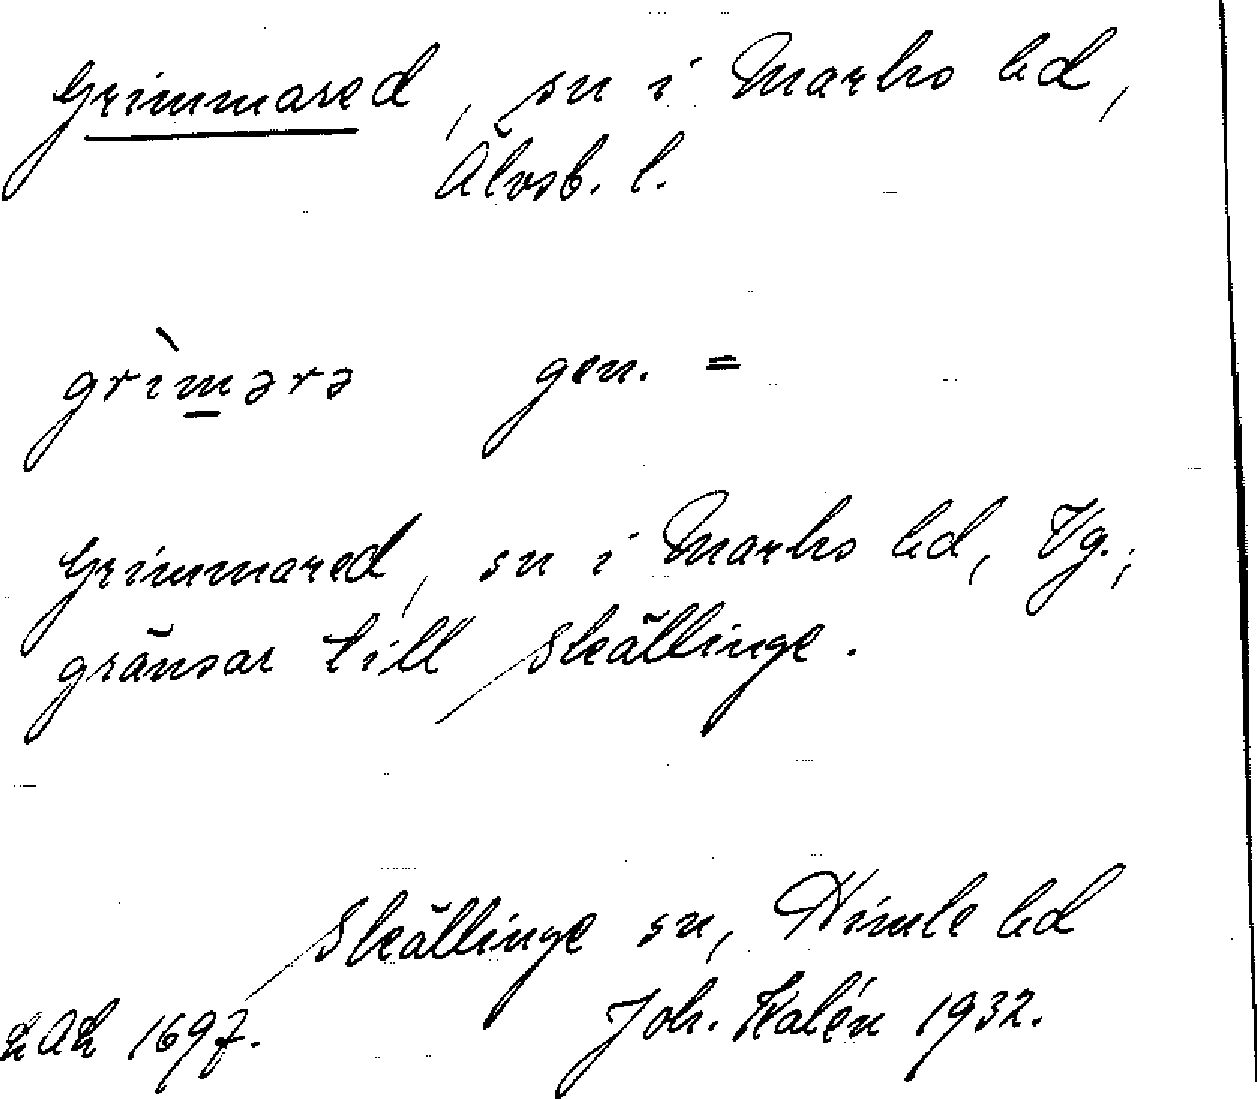 Grimmared, sn i Marks hd,
Älvsb. l.
grìmərə gen. =
Grimmared, sn i Marks hd, Vg.,
gränsar till Skällinge.
Skällinge sn, Himle hd
Joh. Kalén 1932.
1697.